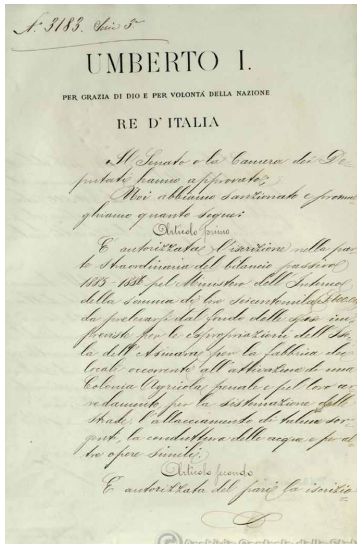 N.º 3183. Serie 3ª
UMBERTO I.
PER GRAZIA DI DIO E PER VOLONTÁ DELLA NAZIONE
RE D'ITALIA
Il Senato e la Camera dei De
putati hanno approvato;
Noi abbiamo sanzionato e promul
ghiamo quanto segue:
Articolo primo
È autorizzata l'iscrizione nella par
te straordinaria del bilancio passivo
1885-188 pel Ministero dell'Interno
della somma di lire
da prelevarsi dal fondo delle spese im
previste per le espropriazioni dell'Iso
la dell'Asinara per la fabbrica dei
locali occorrenti all'attivazione di una
Colonia Agricola penale e pel loro ar
redamento, per la sistemazione delle
strade, l'allacciamento di talune sor
genti, la conduttura delle acque e per al
tre opere simili.
Articolo secondo
È autorizzata del pari la iscrizio